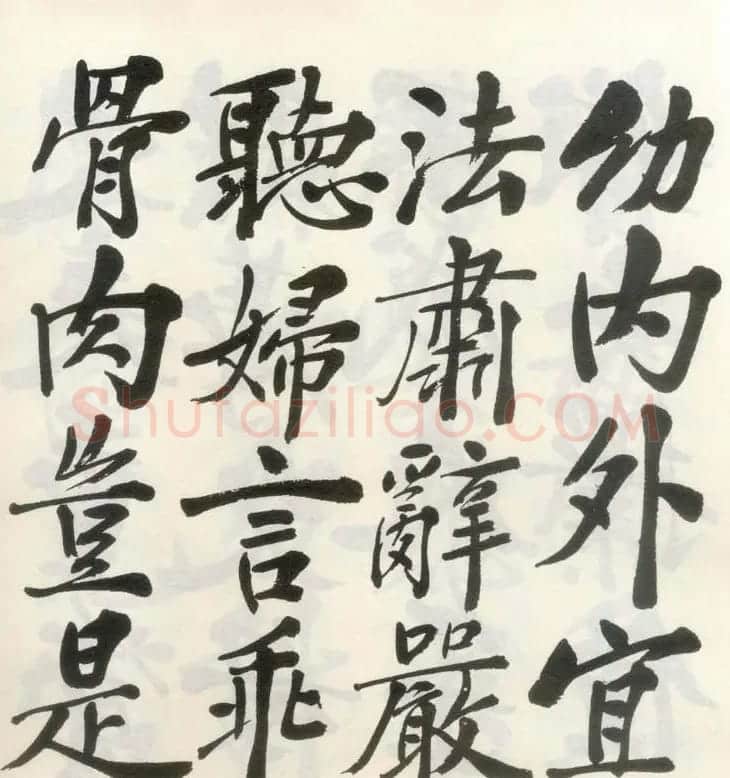 幼内外宜
法肅辭嚴
聽婦言乖
骨肉豈是
Shufaziliao.COM